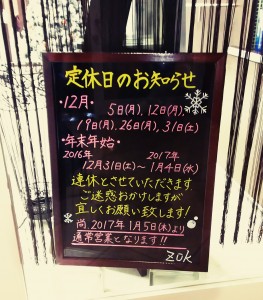 定休日のお知らせ
・12月・
5日(月),12日(月),
19日(月),26日(月),31日(土)
・年末年始・
2016年 2017年
12月31日(土)〜1月4日(水)
連休とさせていただきます
ご迷惑おかけしますが
宜しくお願い致します!
尚2017年1月5日(木)より
通常営業となります!!
ZOK